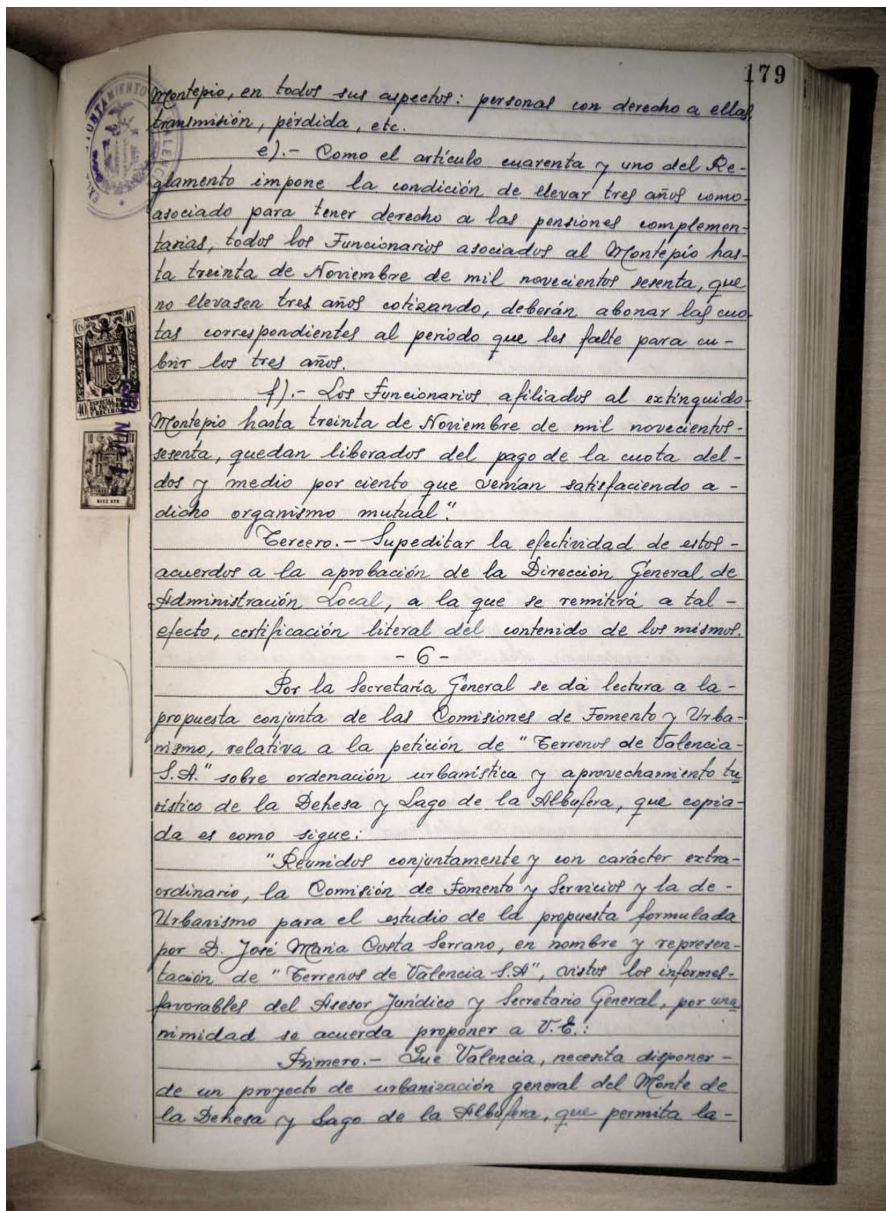 179
Montepio, en todos sus aspectos: personas con derecho a ellas,
transmisión, pérdida, etc.
e).- Como el artículo cuarenta y uno del Re-
glamento impone la condición de llevar tres años como-
asociado para tener derecho a las pensiones complemen-
tarias, todos los Funcionarios asociados al Montepío has-
ta treinta de Noviembre de mil novecientos sesenta, que
no llevasen tres años cotizando, deberán abonar las cuo-
tas correspondientes al periodo que les falte para cu-
brir los tres años.
f).- Los Funcionarios afiliados al extinguido-
Montepio hasta treinta de Noviembre de mil novecientos-
sesenta, quedan liberados del pago de la cuota del-
dos y medio por ciento que venían satisfaciendo a-
dicho organismo mutual".
Tercero.- Supeditar la efectividad de estos-
acuerdos a la aprobación de la Dirección General de
Administración Local, a la que se remitirá a tal-
efecto, certificación literal del contenido de los mismos.
- 6 -
Por la Secretaría General se da lectura a la-
propuesta conjunta de las Comisiones de Fomento y Urba-
nismo, relativa a la petición de "Terrenos de Valencia-
S.A." sobre ordenación urbanística y aprovechamiento tu
rístico de la Dehesa y Lago de la Albufera, que copia-
da es como sigue:
"Reunidos conjuntamente y con carácter extra-
ordinario, la Comisión de Fomento y Servicios y la de-
Urbanismo para el estudio de la propuesta formulada
por D. José Maria Costa Serrano, en nombre y represen-
tación de "Terrenos de Valencia S.A", vistos los informes-
favorables del Asesor Jurídico y Secretario General, por una
nimidad se acuerda proponer a V.E.:
Primero.- Que Valencia, necesita disponer-
de un proyecto de urbanización general del Monte de
la Dehesa y Lago de la Albufera, que permita la-